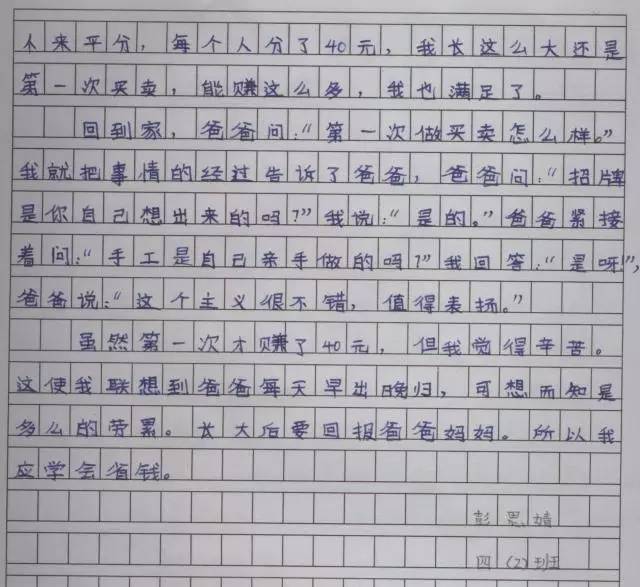 来平分，每个人分了40元，我长这么大还是
第一次买卖，能赚这么多，我也满足了。
回到家，爸爸问：“第一次做买卖怎么样。”
我就把事情的经过告诉了爸爸，爸爸问：“招牌
是你自己想出来的吗？”我说：“是的。”爸爸紧接
着问：“手工是自己亲手做的吗？”我回答：“是呀！”，
爸爸说：“这个主义很不错，值得表扬。”
虽然第一次才赚了40元，但我觉得辛苦。
这使我联想到爸爸每天早出晚归，可想而知是
多么的劳累。长大后要回报爸爸妈妈。所以我
应学会省钱。
彭思婧
四（2）班